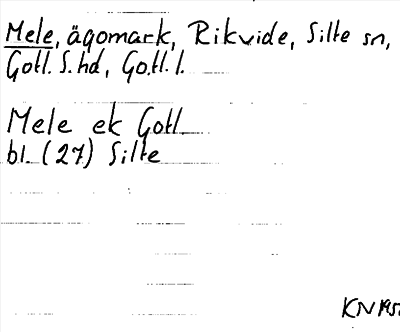 Mele, ägomark, Rikvide, Silte sn,
Gotl. S. hd, Gotl. l.
Mele ek Gotl
bl. (27) Silte
KN